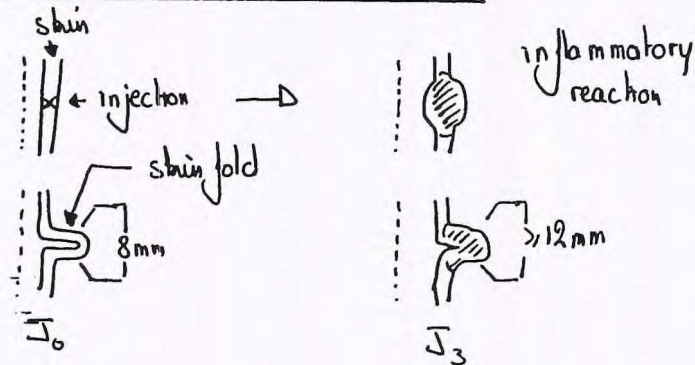 skin
injection
inflammatory
reaction
skin fold
8mm
≥12mm
J0
J3